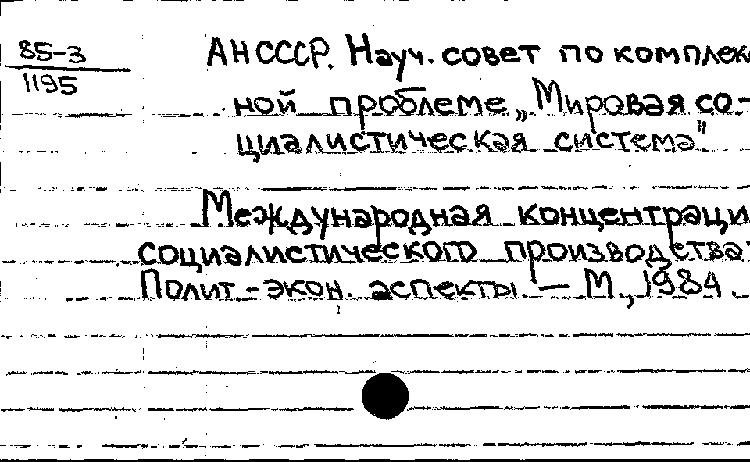 85-3
1195
АН СССР. Науч. совет по комплек
ной проблеме „Мировая со-
циалистическая система"
Международная концентраци
социалистического производства:
Полит.-экон. аспекты. — М., 1984.